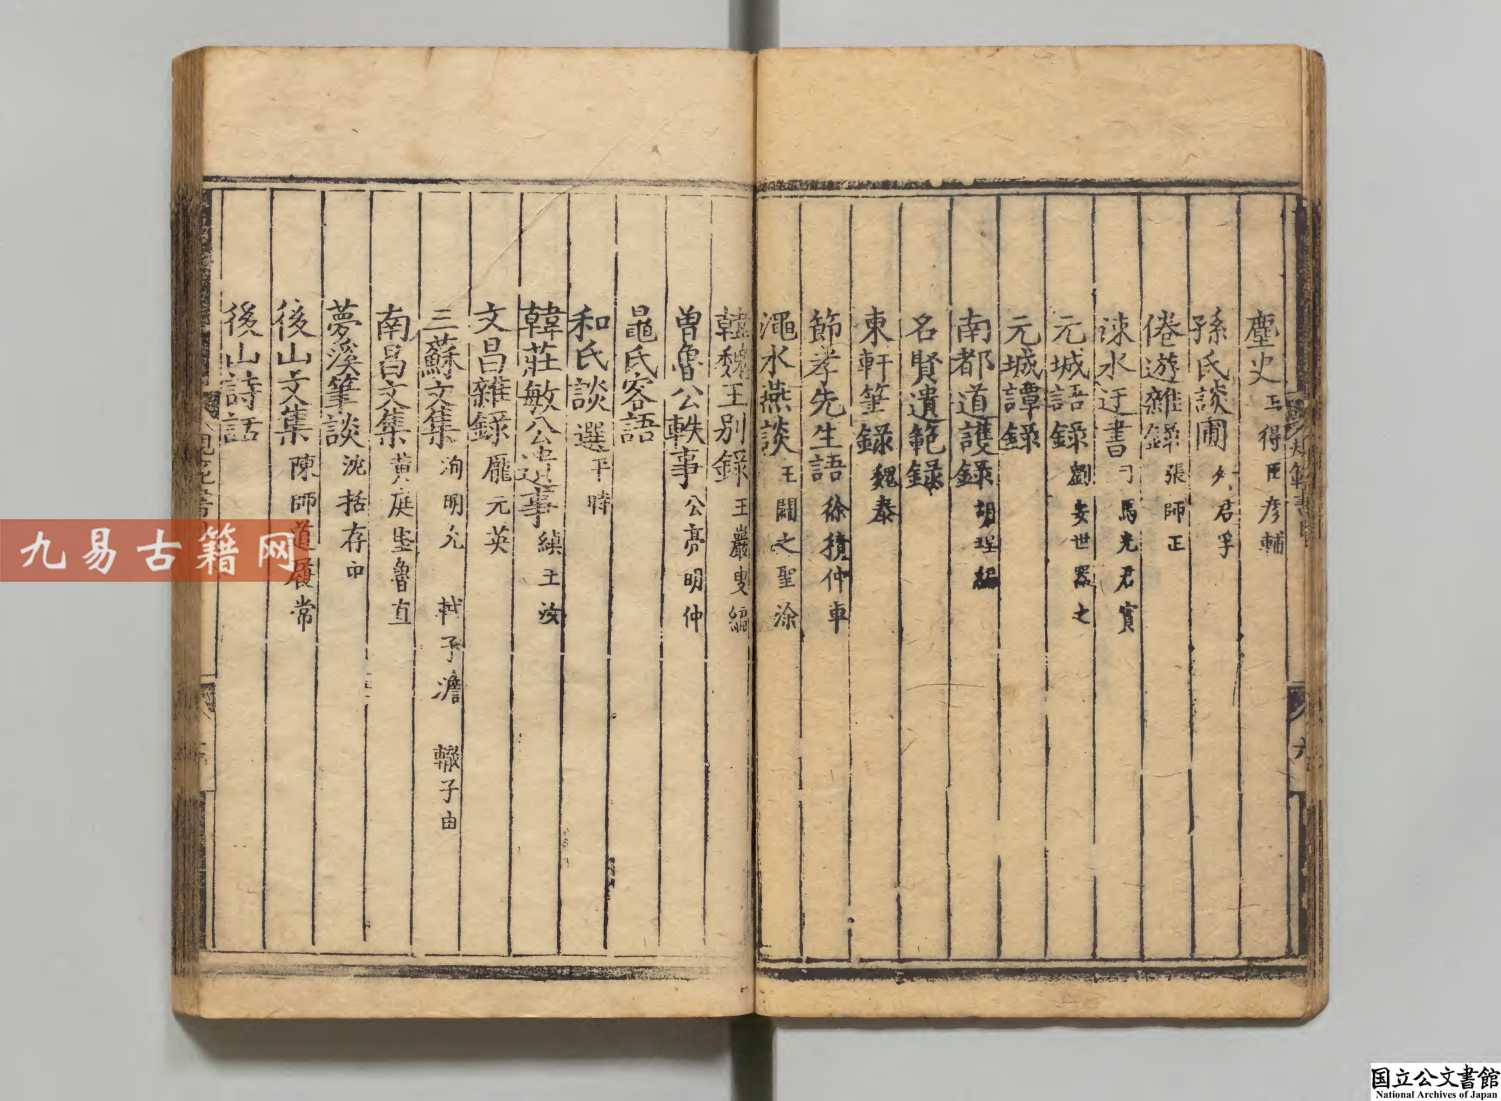 麈史 王得臣彦輔
孫氏談圃 君孚
倦遊雜錄 張師正
涑水迂書 司馬光君實
元城語錄 劉安世器之
元城譚錄
南都道護錄 胡珵編
名賢遺範錄
東軒筆錄 魏泰
節孝先生語 徐積仲車
澠水燕談 王闢之聖涂
韓魏王別錄 王巖叟編
曾魯公軼事 公亮明仲
鼂氏客語
和氏談選 平時
韓莊敏公遺事 縝玉汝
文昌雜錄 龐元英
三蘇文集 洵明允 軾子澹 轍子由
南昌文集 黃庭坚魯直
夢溪筆談 沈括存中
後山文集 陳師道履常
後山詩話
九易古籍网
国立公文書館
National Archives of Japan